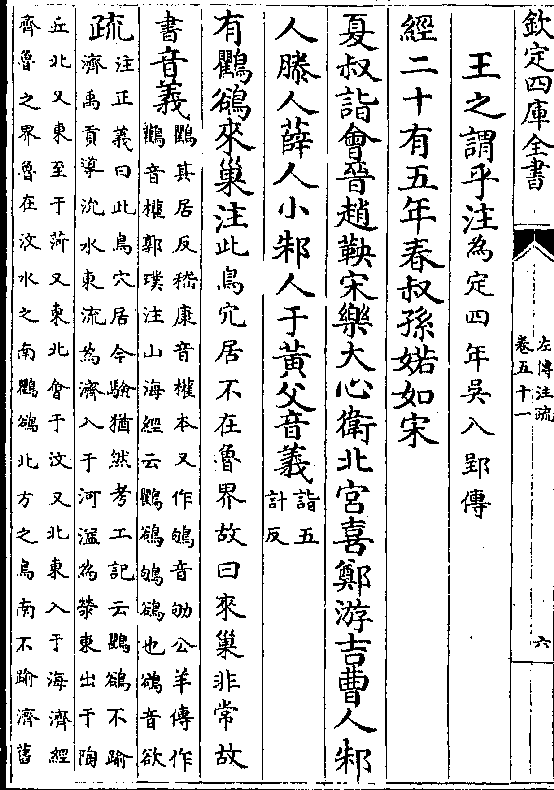 欽定四庫全書
左傳注疏
卷五十一
六
王之謂乎注為定四年吳入郢傳
經二十有五年春叔孫婼如宋
夏叔詣會晉趙鞅宋樂大心衛北宮喜鄭游吉曹人邾
人滕人薛人小邾人于黃父音義詣五
計反
有鸜鵒來巢注此鳥穴居不在魯界故曰來巢非常故
書音義鸜其居反嵇康音權本又作鴝音劬公羊傳作
鸛音權郭璞注山海經云鸜鵒鴝鵒也鵒音欲
疏注正義曰此鳥穴居今驗猶然考工記云鸜鵒不踰
濟禹貢導沇水東流為濟入于河溢為滎東出于陶
丘北又東至于菏又東北會于汶又北東入于海濟經
齊魯之界魯在汶水之南鸜鵒北方之鳥南不踰濟舊